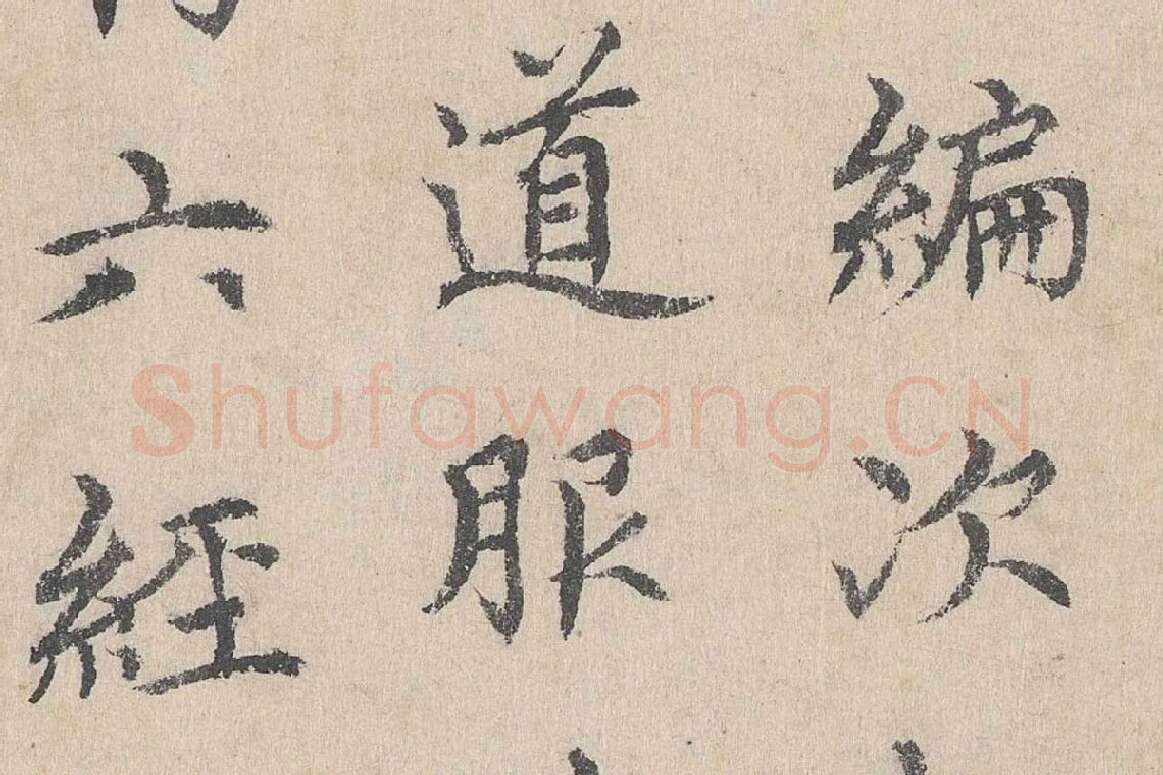 編次
道服
六經
Shufawang.CN